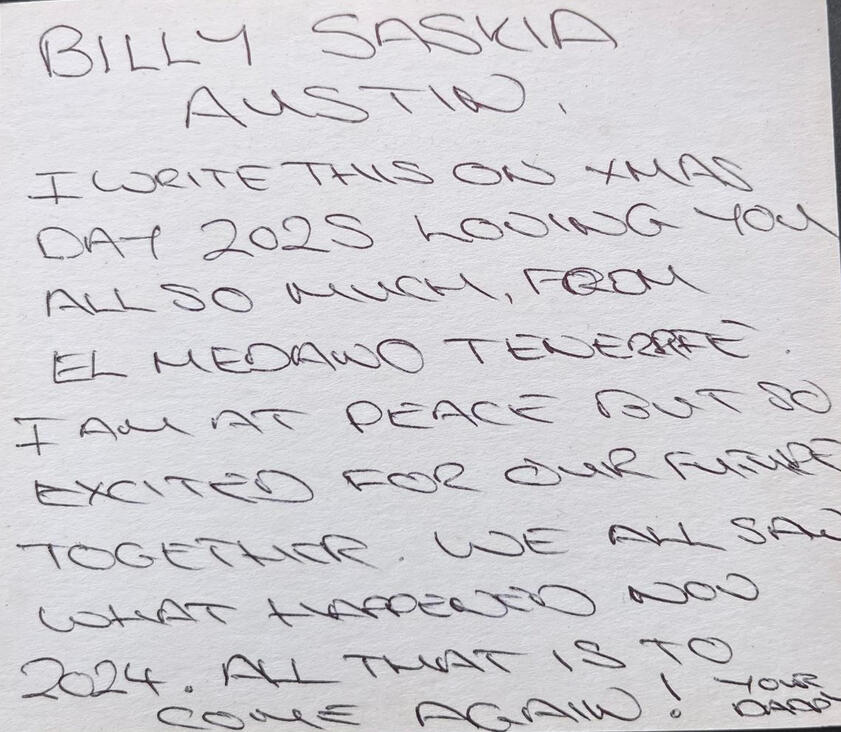 BILLY SASKIA
AUSTIN.
I WRITE THIS ON XMAS
DAY 2025 LOVING YOU
ALL SO MUCH, FROM
EL MEDANO TENERIFE.
I AM AT PEACE BUT SO
EXCITED FOR OUR FUTURE
TOGETHER. WE ALL SAW
WHAT HAPPENED NOV
2024. ALL THAT IS TO
COME AGAIN!
YOUR
DADDY